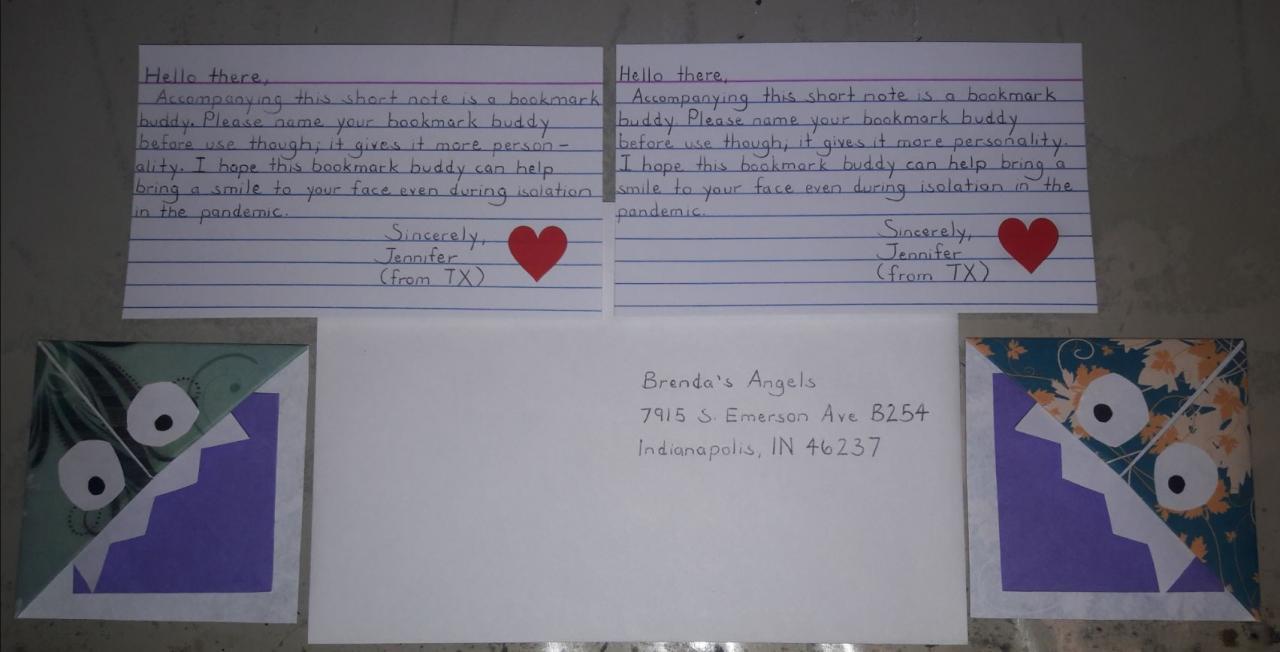 Hello there,
Accompanying this short note is a bookmark
buddy. Please name your bookmark buddy
before use though; it gives it more person-
ality. I hope this bookmark buddy can help
bring a smile to your face even during isolation
in the pandemic.
Sincerely,
Jennifer
(from TX)
Hello there,
Accompanying this short note is a bookmark
buddy. Please name your bookmark buddy
before use though; it gives it more personality.
I hope this bookmark buddy can help bring a
smile to your face even during isolation in the
pandemic.
Sincerely,
Jennifer
(from TX)
Brenda's Angels
7915 S. Emerson Ave B254
Indianapolis, IN 46237